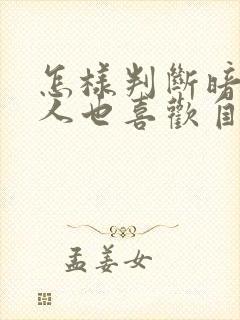 怎樣判斷暗
人也喜歡自
孟姜女